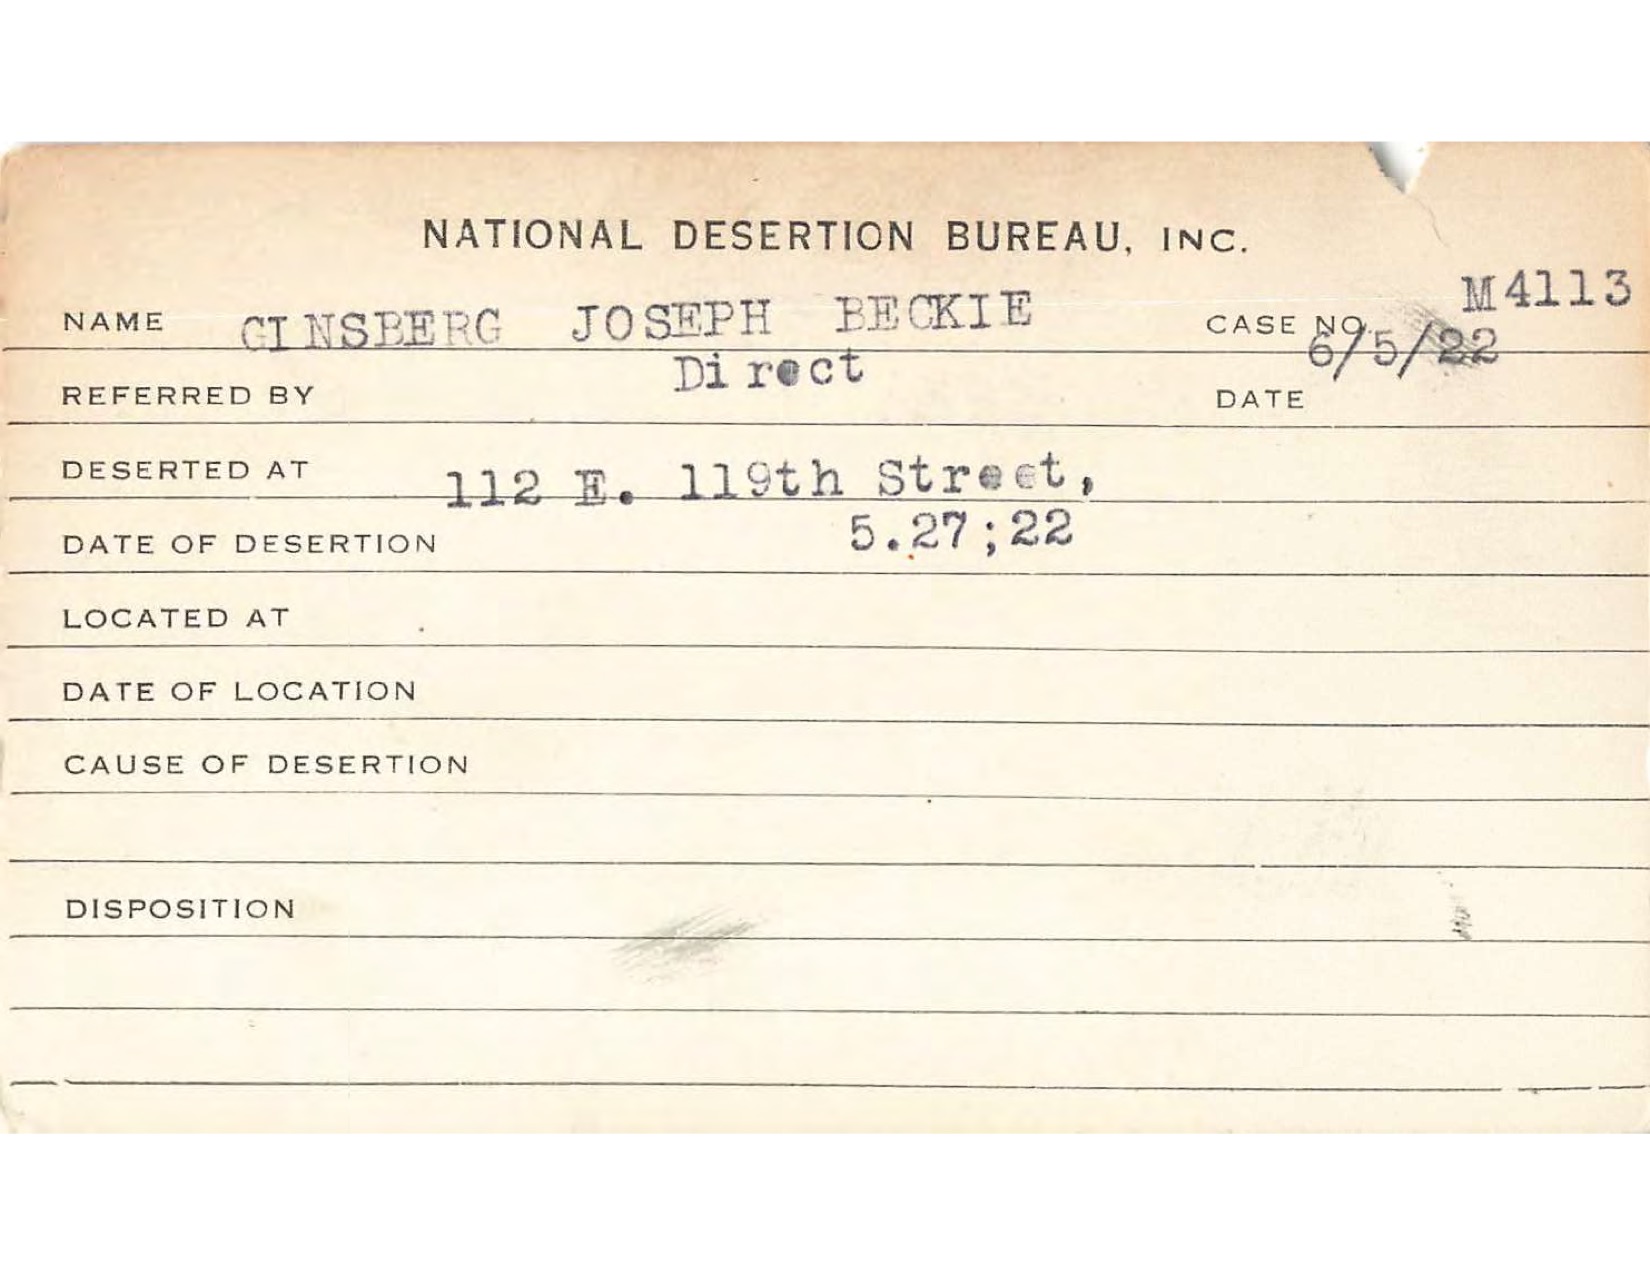 NATIONAL DESERTION BUREAU, INC.
NAME GINSBERG JOSEPH BECKIE CASE NO. M4113
REFERRED BY Direct DATE 6/5/22
DESERTED AT 112 E. 119th Street,
DATE OF DESERTION 5.27;22
LOCATED AT
DATE OF LOCATION
CAUSE OF DESERTION
DISPOSITION